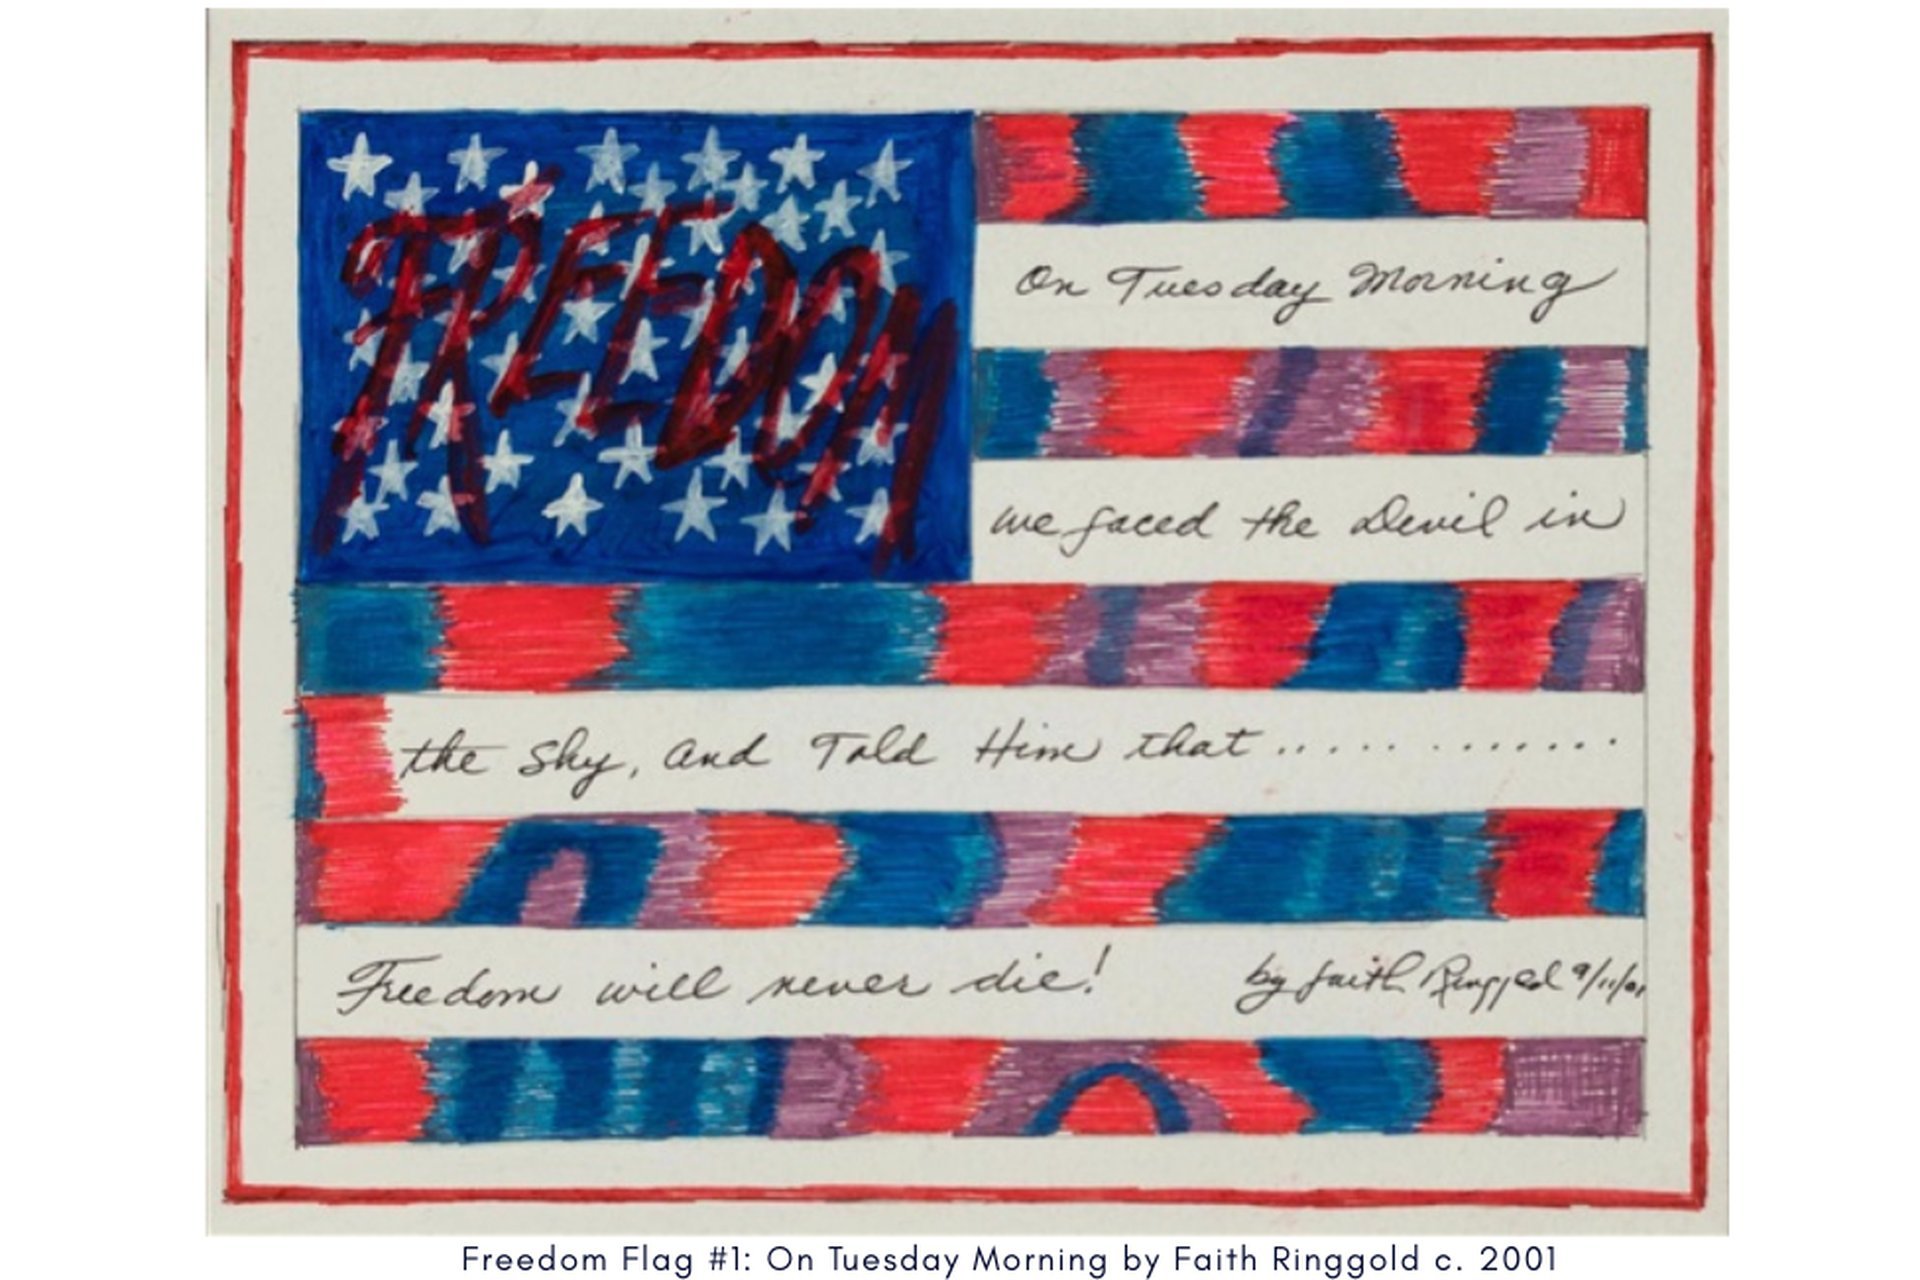 FREEDOM
On Tuesday Morning
we faced the Devil in
the Sky, and Told Him that.............
Freedom will never die! by Faith Ringgold 9/11/01
Freedom Flag #1: On Tuesday Morning by Faith Ringgold c. 2001